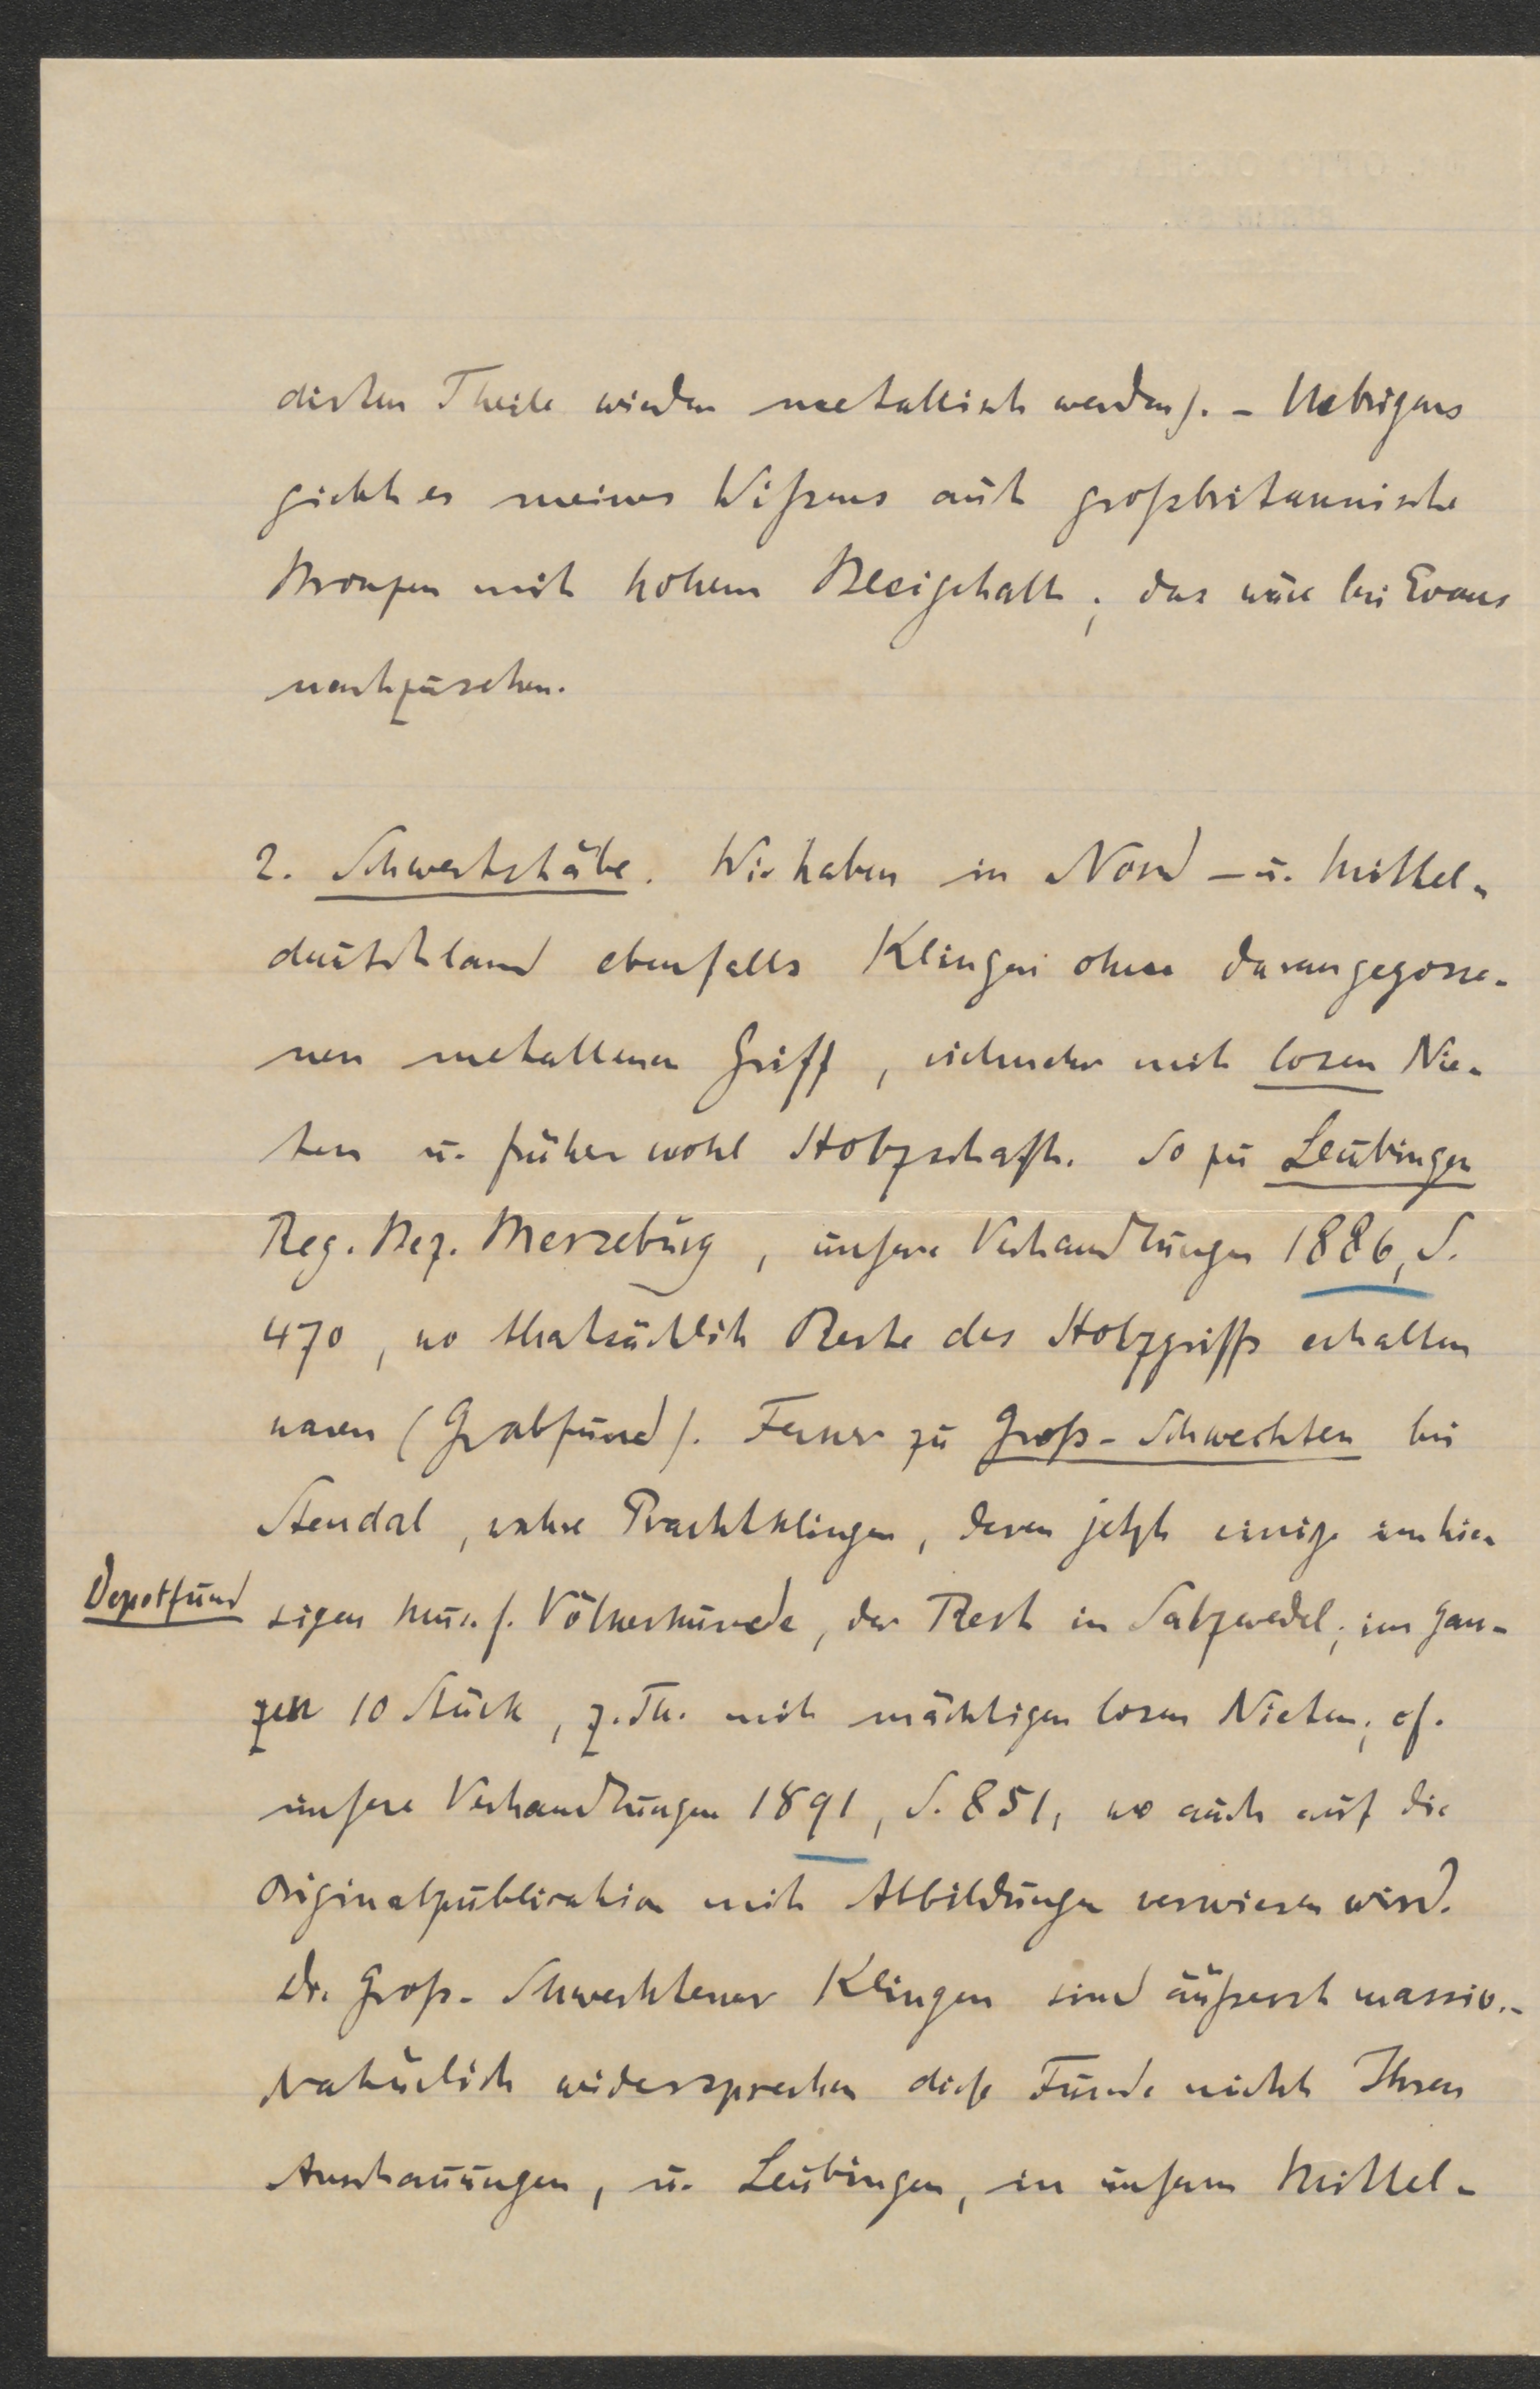 dirten Theile wieder metallisch werden). – Uebrigens
giebt es meines Wißens auch großbritannische
Bronzen mit hohem Bleigehalt; das wäre bei Evans
nachzusehen.
2. Schwertstäbe. Wir haben in Nord- u. Mittel-
deutschland ebenfalls Klingen ohne darangegosse-
nen metallenen Griff, vielmehr mit losen Nie-
ten u. früher wohl Holzschaft. So zu Leubingen
Reg. Bez. Merseburg, unsere Verhandlungen 1886, S.
470, wo thatsächlich Reste des Holzgriffs erhalten
waren (Grabfund). Ferner zu Groß-Schwechten bei
Stendal, wahre Prachtklingen, deren jetzt einige im hie-
Depotfund
sigen Mus. f. Völkerkunde, der Rest in Salzwedel; im Gan-
zen 10 Stück, z. Th. mit mächtigen losen Nieten; cf.
unsere Verhandlungen 1891, S. 851, wo auch auf die
Originalpublication mit Abbildungen verwiesen wird.
Die Groß-Schwechtener Klingen sind äußerst massiv. –
Natürlich widersprechen diese Funde nicht Ihren
Anschauungen, u. Leubingen, in unserm Mittel-